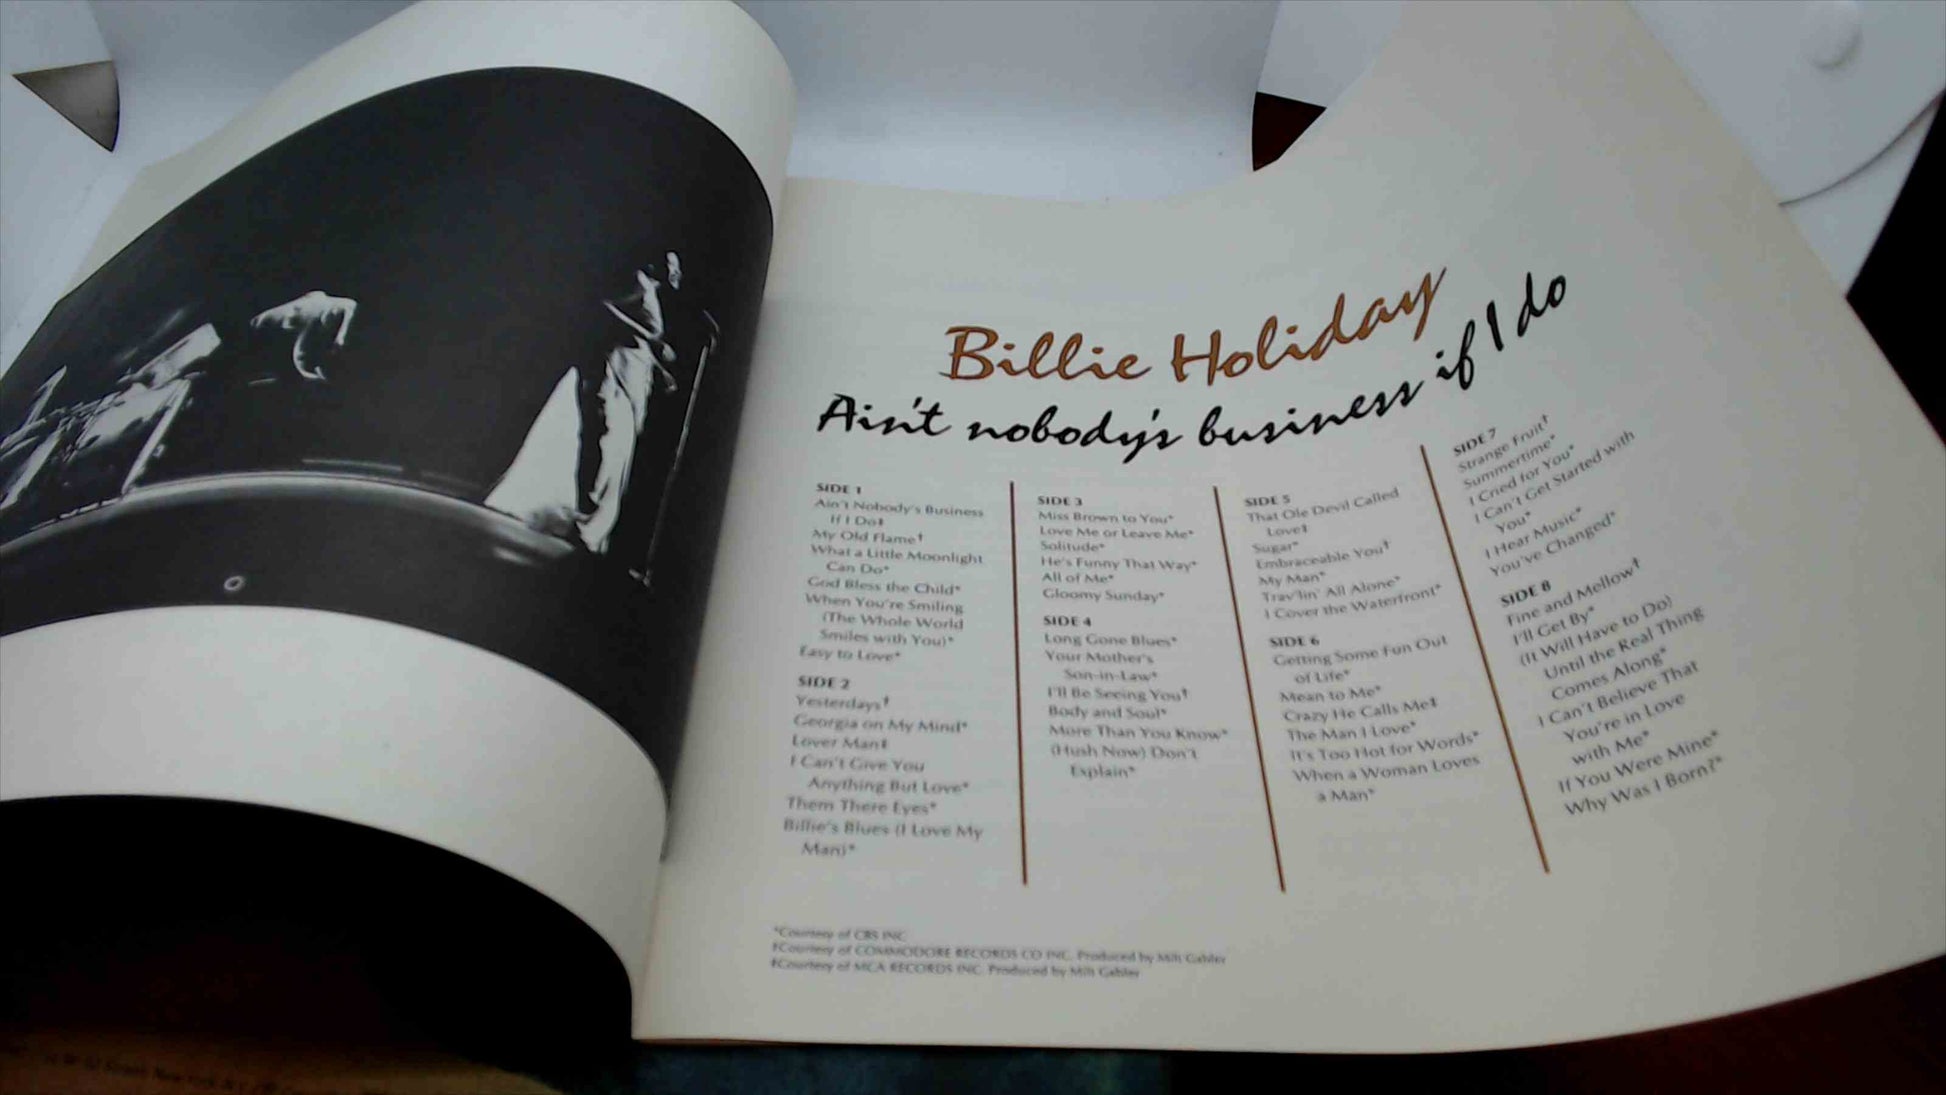 Billie Holiday
Ain't nobody's business if I do
SIDE 1
Ain't Nobody's Business
If I Do‡
My Old Flame†
What a Little Moonlight
Can Do*
God Bless the Child*
When You're Smiling
(The Whole World
Smiles with You)*
Easy to Love*
SIDE 2
Yesterdays†
Georgia on My Mind*
Lover Man‡
I Can't Give You
Anything But Love*
Them There Eyes*
Billie's Blues (I Love My
Man)*
SIDE 3
Miss Brown to You*
Love Me or Leave Me*
Solitude*
He's Funny That Way*
All of Me*
Gloomy Sunday*
SIDE 4
Long Gone Blues*
Your Mother's
Son-in-Law*
I'll Be Seeing You†
Body and Soul*
More Than You Know*
(Hush Now) Don't
Explain*
SIDE 5
That Ole Devil Called
Love‡
Sugar*
Embraceable You†
My Man*
Trav'lin' All Alone*
I Cover the Waterfront*
SIDE 6
Getting Some Fun Out
of Life*
Mean to Me*
Crazy He Calls Me‡
The Man I Love*
It's Too Hot for Words*
When a Woman Loves
a Man*
SIDE 7
Strange Fruit†
Summertime*
I Cried for You*
I Can't Get Started with
You*
I Hear Music*
You've Changed*
SIDE 8
Fine and Mellow†
I'll Get By*
(It Will Have to Do)
Until the Real Thing
Comes Along*
I Can't Believe That
You're in Love
with Me*
If You Were Mine*
Why Was I Born?*
*Courtesy of CBS INC.
†Courtesy of COMMODORE RECORDS CO INC. Produced by Milt Gabler
‡Courtesy of MCA RECORDS INC. Produced by Milt Gabler